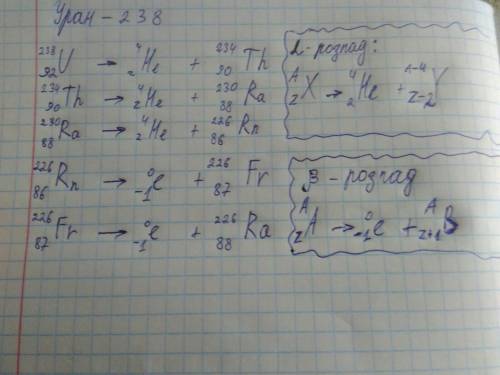 Уран - 238
²³⁸₉₂U → ⁴₂He + ²³⁴₉₀Th
²³⁴₉₀Th → ⁴₂He + ²³⁰₈₈Ra
²³⁰₈₈Ra → ⁴₂He + ²²⁶₈₆Rn
²²⁶₈₆Rn → ⁰₋₁e + ²²⁶₈₇Fr
²²⁶₈₇Fr → ⁰₋₁e + ²²⁶₈₈Ra
α-розпад:
ᴬ_ZX → ⁴₂He + ᴬ⁻⁴_Z₋₂Y
β - розпад
ᴬ_ZA → ⁰₋₁e + ᴬ_Z₊₁B